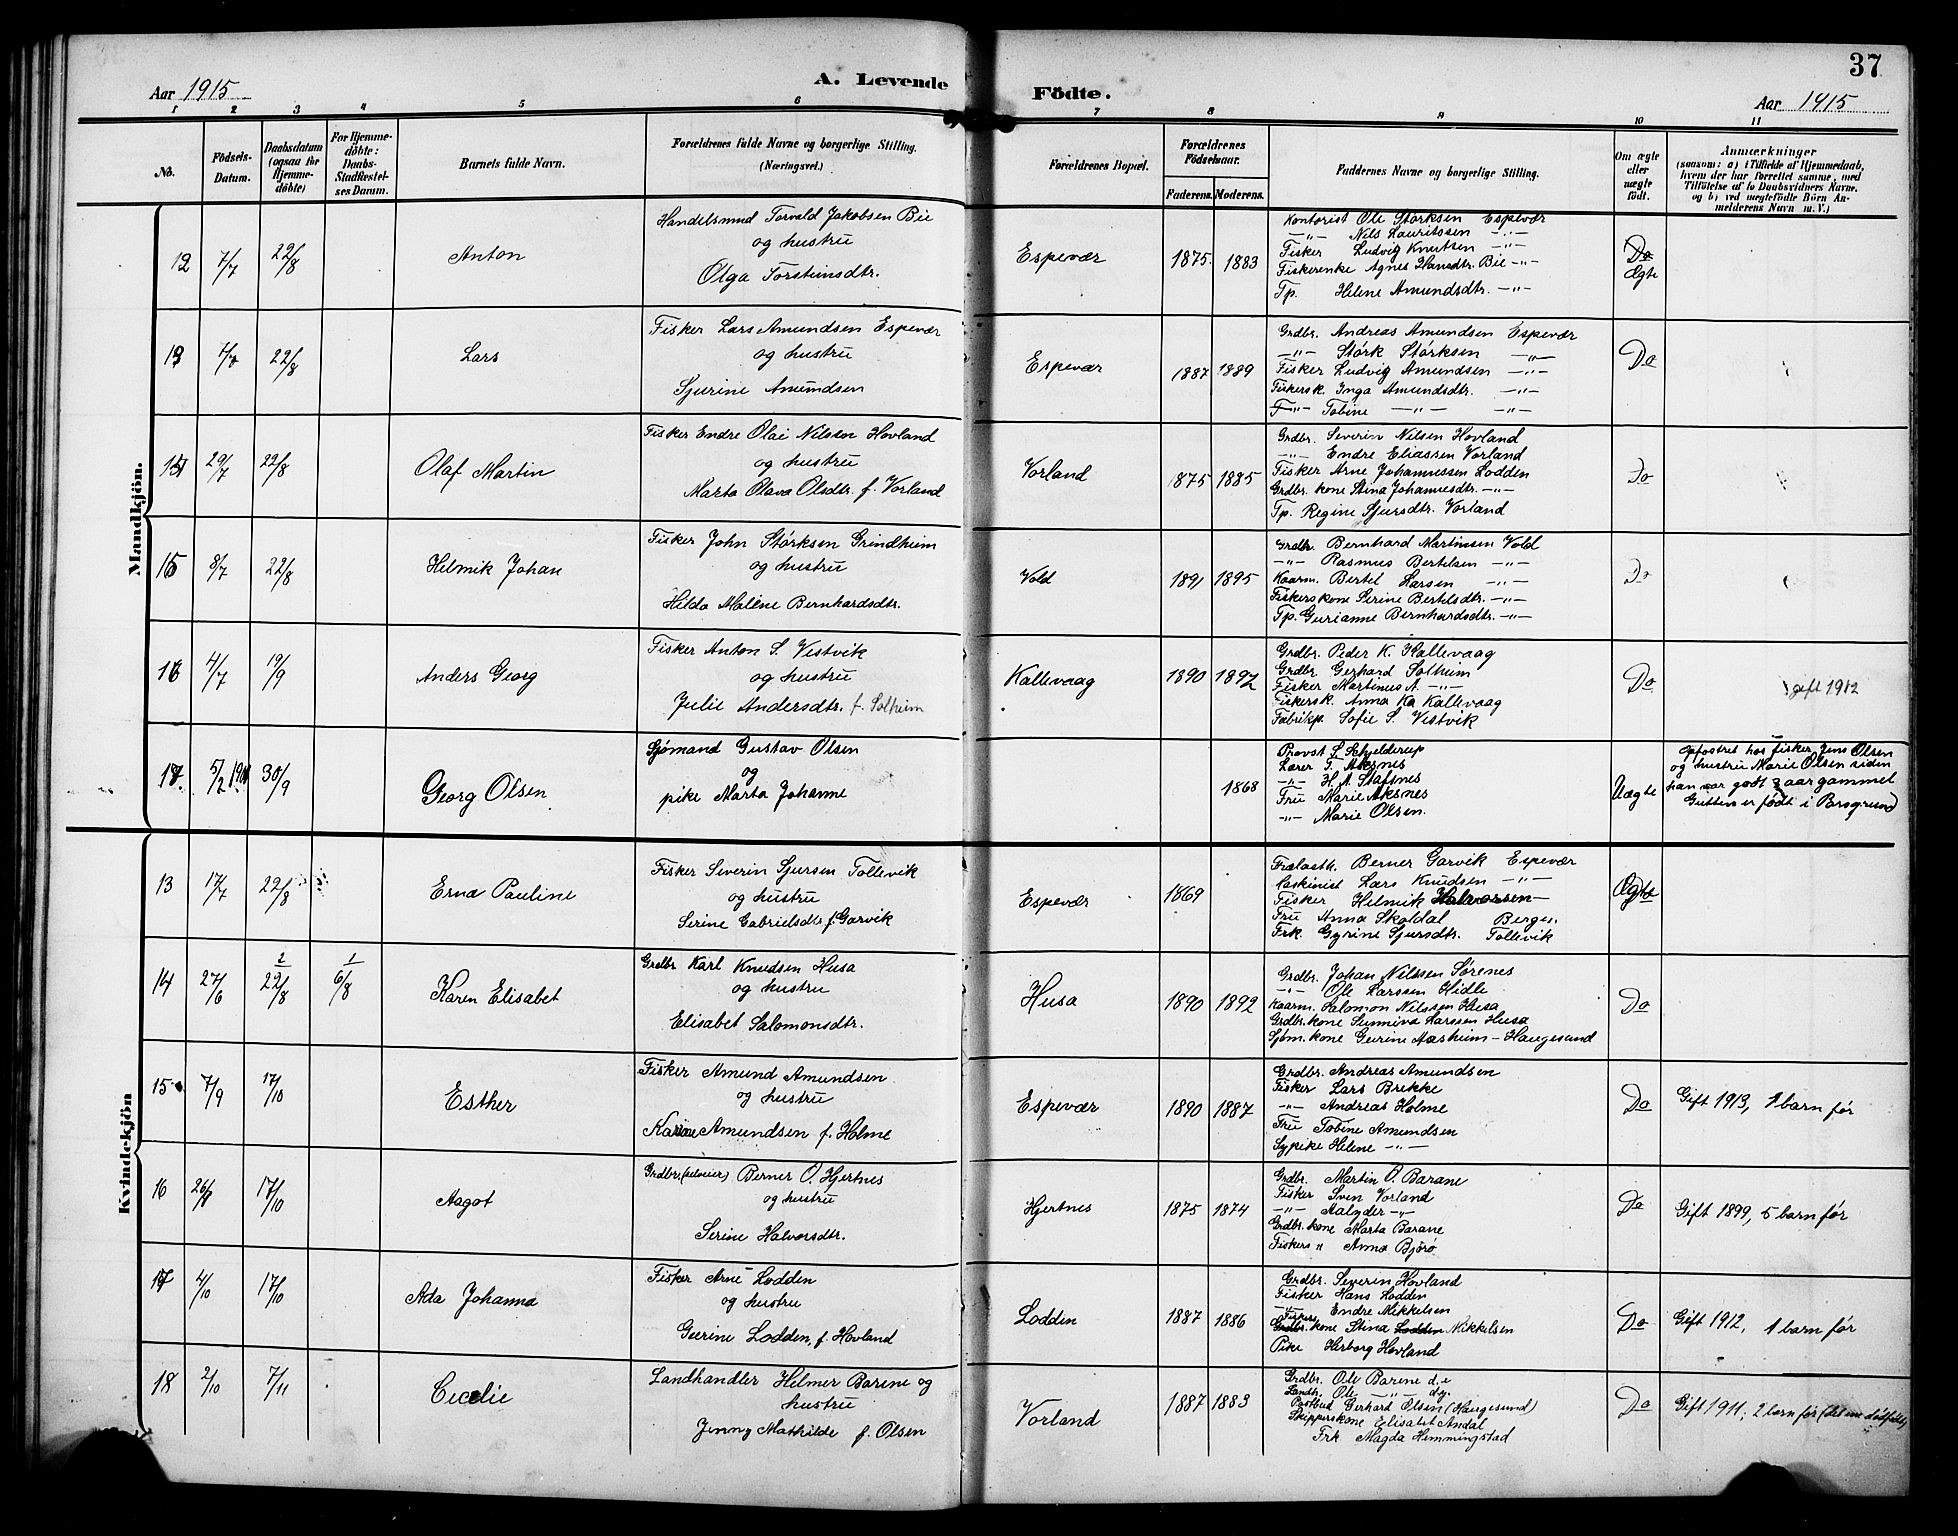 37
Aar 1915
A. Levende
Födte.
Aar 1915
1 2 3 4 5 6 7 8 9 10 11
No.
Födsels-
Datum.
Daabsdatum
(ogsaa for
Hjemme-
döbte)
For Hjemme-
döbte:
Daabs-
Stadfæstel-
ses Datum.
Barnets fulde Navn.
Forældrenes fulde Navne og borgerlige Stilling.
(Næringsvei.)
Forældrenes Bopæl.
Forældrenes
Födselsaar.
Faderens. Moderens.
Faddernes Navne og borgerlige Stilling.
Om ægte
eller
uægte
født.
Anmærkninger
(saasom: a) i Tilfælde af Hjemmedaab,
hvem der har forrettet samme, med
Tilföielse af to Daabsvidners Navne.
og b) ved uægtefödte Börn An-
melderens Navn m. V.)
Mandkjön.
12 7/7 22/8 Anton
Handelsmnd Torvald Jakobsen Bie
og hustru
Olga Torsteinsdtr.
Espevær 1875. 1883
Kontorist Ole Størksen Espevær
—"— Nils Lauritssen —"—
Fisker Ludvig Knutsen —"—
Fiskerenke Agnes Hansdtr. Bie —"—
Tp. Helene Amundsdtr. —"—
Do
Ægte
13 22/8 Lars
Fisker Lars Amundsen Espevær
og hustru
Sjurine Amundsen
Espevær 1887 1889
Grdbr. Andreas Amundsen Espevær
—"— Størk Størksen —"—
Fisker Ludvig Amundsen —"—
Fiskersk. Inga Amundsdtr. —"—
—"— Tobine —"— —"—
Do
29/7 22/8 Olaf Martin
Fisker Endre Olai Nilsen Hovland
og hustru
Marta Olava Olsdtr. f. Vorland
Vorland 1875 1885
Grdbr. Severin Nilsen Hovland
—"— Endre Eliassen Vorland
Fisker Arne Johannessen Lodden
Grdbr. kone Stina Johannesdtr. —"—
Tp. Regine Sjursdtr. Vorland
Do
15 8/7 22/8 Helmik Johan
Fisker John Størksen Grindheim
og hustru
Hilda Malene Bernhardsdtr.
Vold 1891 1895
Grdbr. Bernhard Martinsen Vold
—"— Rasmus Bertelsen —"—
Kaarm. Bertel Larsen —"—
Fiskerskone Serine Bertelsdtr. —"—
Tp. Gurianne Bernhardsdtr. —"—
Do
16 4/7 19/9 Anders Georg
Fisker Anton S. Vestvik
og hustru
Julie Andersdtr. f. Solheim
Kallevaag 1890 1892
Grdbr. Peder K. Kallevaag
Grdbr. Gerhard Solheim
Fisker Martinus A —"—
Fiskersk. Anna Ka Kallevaag
Fabrikp. Sofie S. Vestvik
Do
gift 1912
17. 5/2 30/9 Georg Olsen
Sjømand Gustav Olsen
og
pike Marta Johanne
1868
Provst S. Schjelderup
Lærer T. Aksnes
—"— H. A. Stafsnes
Fru Marie Aksnes
—"— Marie Olsen.
Uægte
Opfostret hos fisker Jens Olsen
og hustru Marie Olsen siden
han var godt 3 aar gammel
Gutten er født i Porsgrund
Kvindekjön
13 17/7 22/8 Erna Pauline
Fisker Severin Sjursen Tollevik
og hustru
Serine Gabrielsdtr f. Garvik
Espevær 1869
Berner Garvik Espevær
Maskinist Lars Knudsen —"—
Fisker Helmik Halvorsen —
Fru Anna Skaldal Bergen.
Frk. Gyrine Sjursdtr. Tollevik
Ægte
14 27/6 2 22/8 1 6/8 Karen Elisabet
Grdbr Karl Knudsen Husa
og hustru
Elisabet Salomonsdtr.
Husa 1890 1892
Grdbr. Johan Nilssen Sørenes
—"— Ole Larssen Hidle
Kaarm. Salomon Nilssen Husa
Grdbr. kone Sunniva Larssen Husa
Sjøm. kone Gurine Aasheim – Haugesund
Do
15 7/9 17/10 Esther
Fisker Amund Amundsen
og hustru
Karine Amundsen f. Holme
Espevær 1890 1887
Grdbr. Andreas Amundsen
Fisker Lars Brekke
—"— Andreas Holme
Fru Tobine Amundsen
Sypike Helene —"—
Do
Gift 1913, 1 barn før
16 26/8 17/10 Aagot
Grdbr. (selveier) Berner O. Hjertnes
og hustru
Serine Halvorsdtr.
Hjertnes 1875 1874
Grdbr. Martin O. Barane
Fisker Sven Vorland
—"— Aalgder —"—
Grdbr. kone Marta Barane
Fiskers " Anna Bjørø
Do
Gift 1899, 5 barn før
17 4/10 17/10 Ada Johanna
Fisker Arne Lodden
og hustru
Gurine Lodden, f. Hovland
Lodden 1887 1886
Grdbr. Severin Hovland
Fisker Hans Lodden
—"— Endre Mikkelsen
Fiskers
Grdbr. kone Stina Lodden Mikkelsen
Pike Herborg Hovland
Do
Gift 1912, 1 barn før
18 2/10 7/11 Cecelie
Landhandler Helmer Barene og
hustru
Jenny Mathilde f. Olsen
Vorland 1887 1883
Grdbr. Ole Barene d.e
Landh. Ole —"— d.y.
Postbud Gerhard Olsen (Haugesund)
Skipperskone Elisabet Andal
Frk Magda Hemmingstad
Do
Gift 1911; 2 barn før (det ene dødfødt)